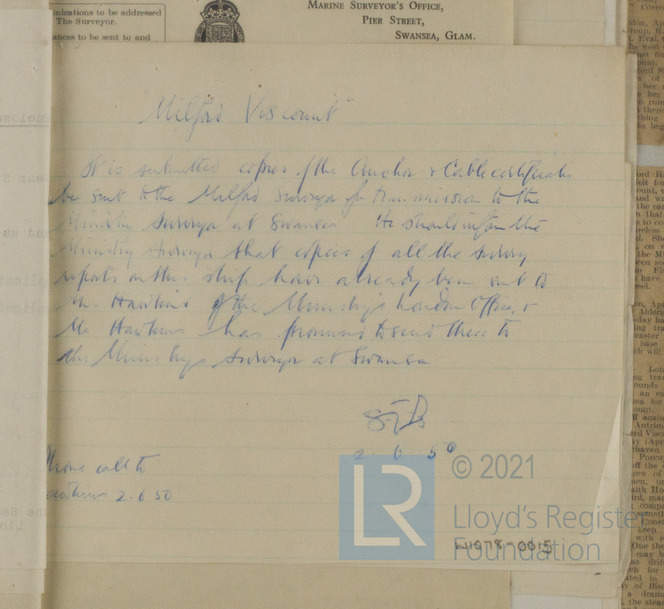 unications to be addressed
The Surveyor.
ances to be sent to and
MARINE SURVEYOR'S OFFICE,
PIER STREET,
SWANSEA, GLAM.
"Milford Viscount"
It is submitted copies of the Anchor & Cable certificates
be sent to the Milford Surveyor for transmission to the
Ministry Surveyor at Swansea. He should inform the
Ministry Surveyor that copies of all the survey
reports on this ship have already been sent to
Mr. Hawkins of the Ministry's London Office, &
Mr Hawkins has promised to send these to
the Ministry's Surveyor at Swansea
2. 6 50
Phone call to
Hawkins 2.6.50
LR
© 2021
Lloyd's Register
Foundation
W1078-0015